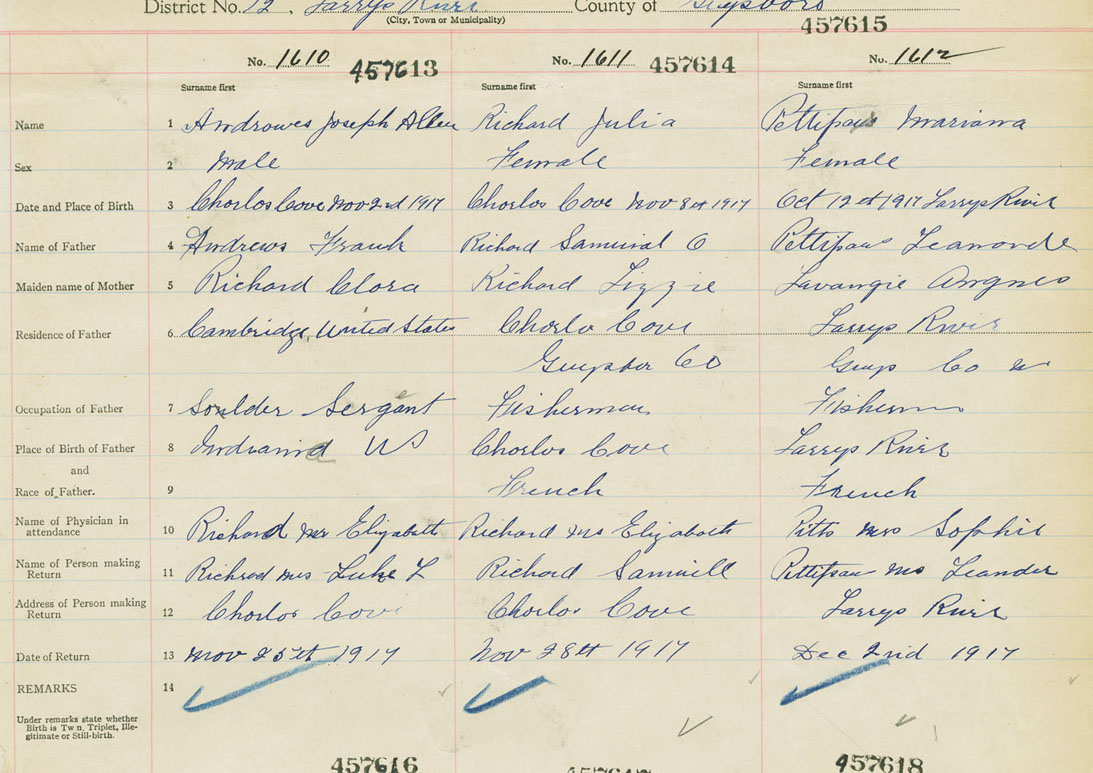 District No. 12, Larrys River County of Guysboro
(City, Town or Municipality)
457615
No. 1610 457613 No. 1611 457614 No. 1612
Surname first Surname first Surname first
Name 1 Androwes Joseph Allen Richard Julia Pettipaus Mariana
Sex 2 Male Female Female
Date and Place of Birth 3 Chorlos Cove Nov 2nd 1917 Chorlos Cove Nov 8th 1917 Oct 12th 1917 Larrys River
Name of Father 4 Andrews Frank Richard Samuial O Pettipaus Leanorde
Maiden name of Mother 5 Richard Clora Richard Lizzie Lavangie Angnes
Residence of Father 6 Cambridge, United States Chorlo Cove Larrys River
Guysbor Co Guys Co
Occupation of Father 7 Soulder Sergant Fisherman Fisherm
Place of Birth of Father 8 Indiania US Chorlos Cove Larrys River
and
Race of Father. 9 French French
Name of Physician in
attendance 10 Richard Mr Elizabeth Richard Ms Elizabath Pitts Mrs Sophie
Name of Person making
Return 11 Richrod Mrs Luke L Richard Samuell Pettipau Ms Leander
Address of Person making
Return 12 Chorlos Cove Chorlos Cove Larrys River
Date of Return 13 Nov 25th 1917 Nov 28th 1917 Dec 2nd 1917
REMARKS 14
Under remarks state whether
Birth is Twn, Triplet, Ille-
gitimate or Still-birth.
457616 457618